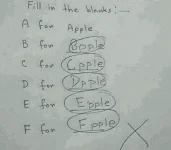 Fill in the blanks:—
A for Apple
B for Bpple
C for Cpple
D for Dpple
E for Epple
F for Fpple